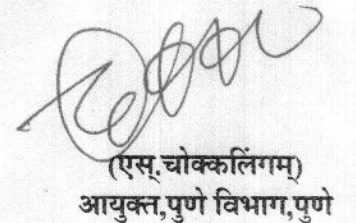 (एस्.चोक्कलिंगम्)
आयुक्त,पुणे विभाग,पुणे